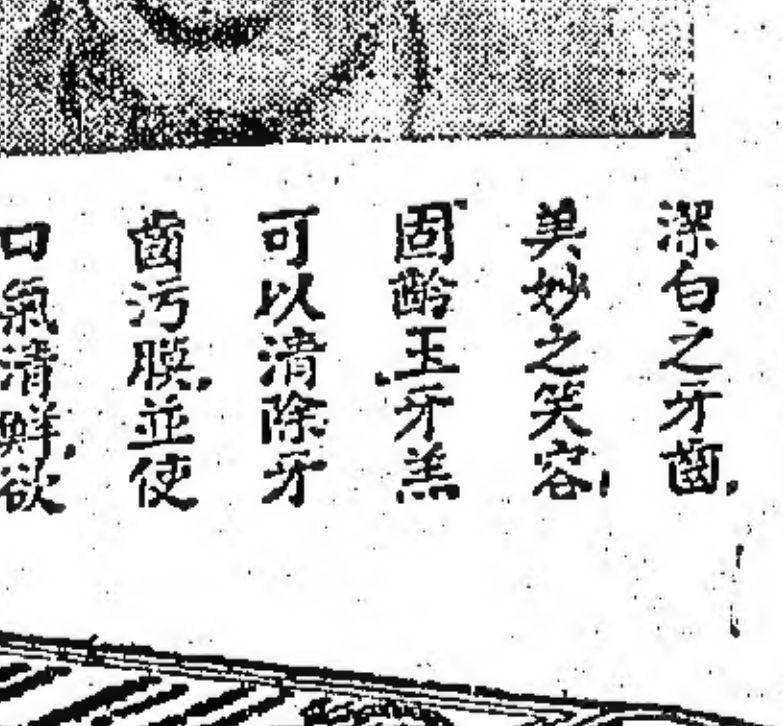 潔白之牙齒，
美妙之笑容，
固齡玉牙羔
可以清除牙
齒污膜，並使
口氣清鮮，欲